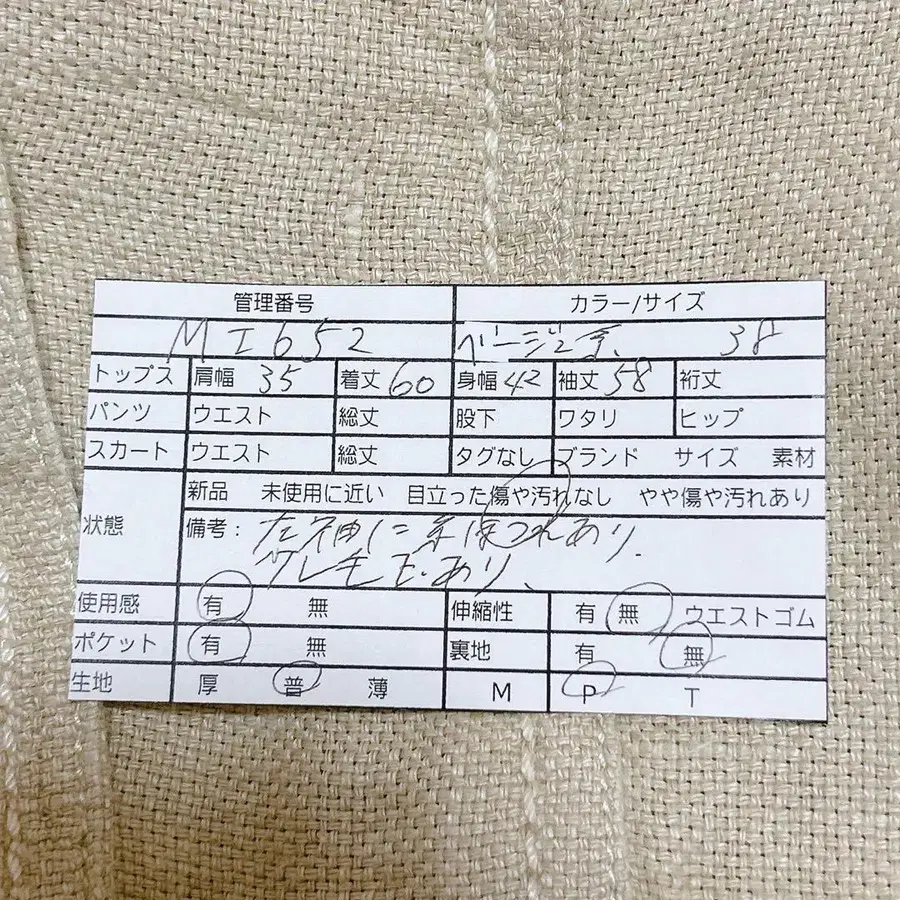 管理番号 カラー/サイズ
MI652 ベージュ系 38
トップス 肩幅 35 着丈 60 身幅 42 袖丈 58 裄丈
パンツ ウエスト 総丈 股下 ワタリ ヒップ
スカート ウエスト 総丈 タグなし ブランド サイズ 素材
状態 新品 未使用に近い 目立った傷や汚れなし やや傷や汚れあり
備考: 左袖に糸ほつれあり
スレ毛玉あり、
使用感 有 無 伸縮性 有 無 ウエストゴム
ポケット 有 無 裏地 有 無
生地 厚 普 薄 M P T